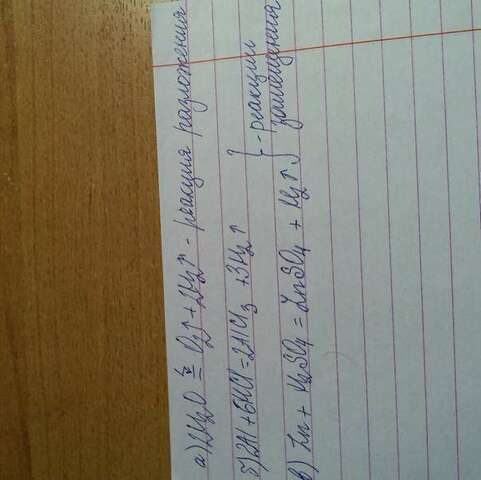 а) 2H₂O = O₂↑ + 2H₂↑ - реакция разложения
б) 2Al + 6HCl = 2AlCl₃ + 3H₂↑
в) Zn + H₂SO₄ = ZnSO₄ + H₂↑
} - реакции
замещения